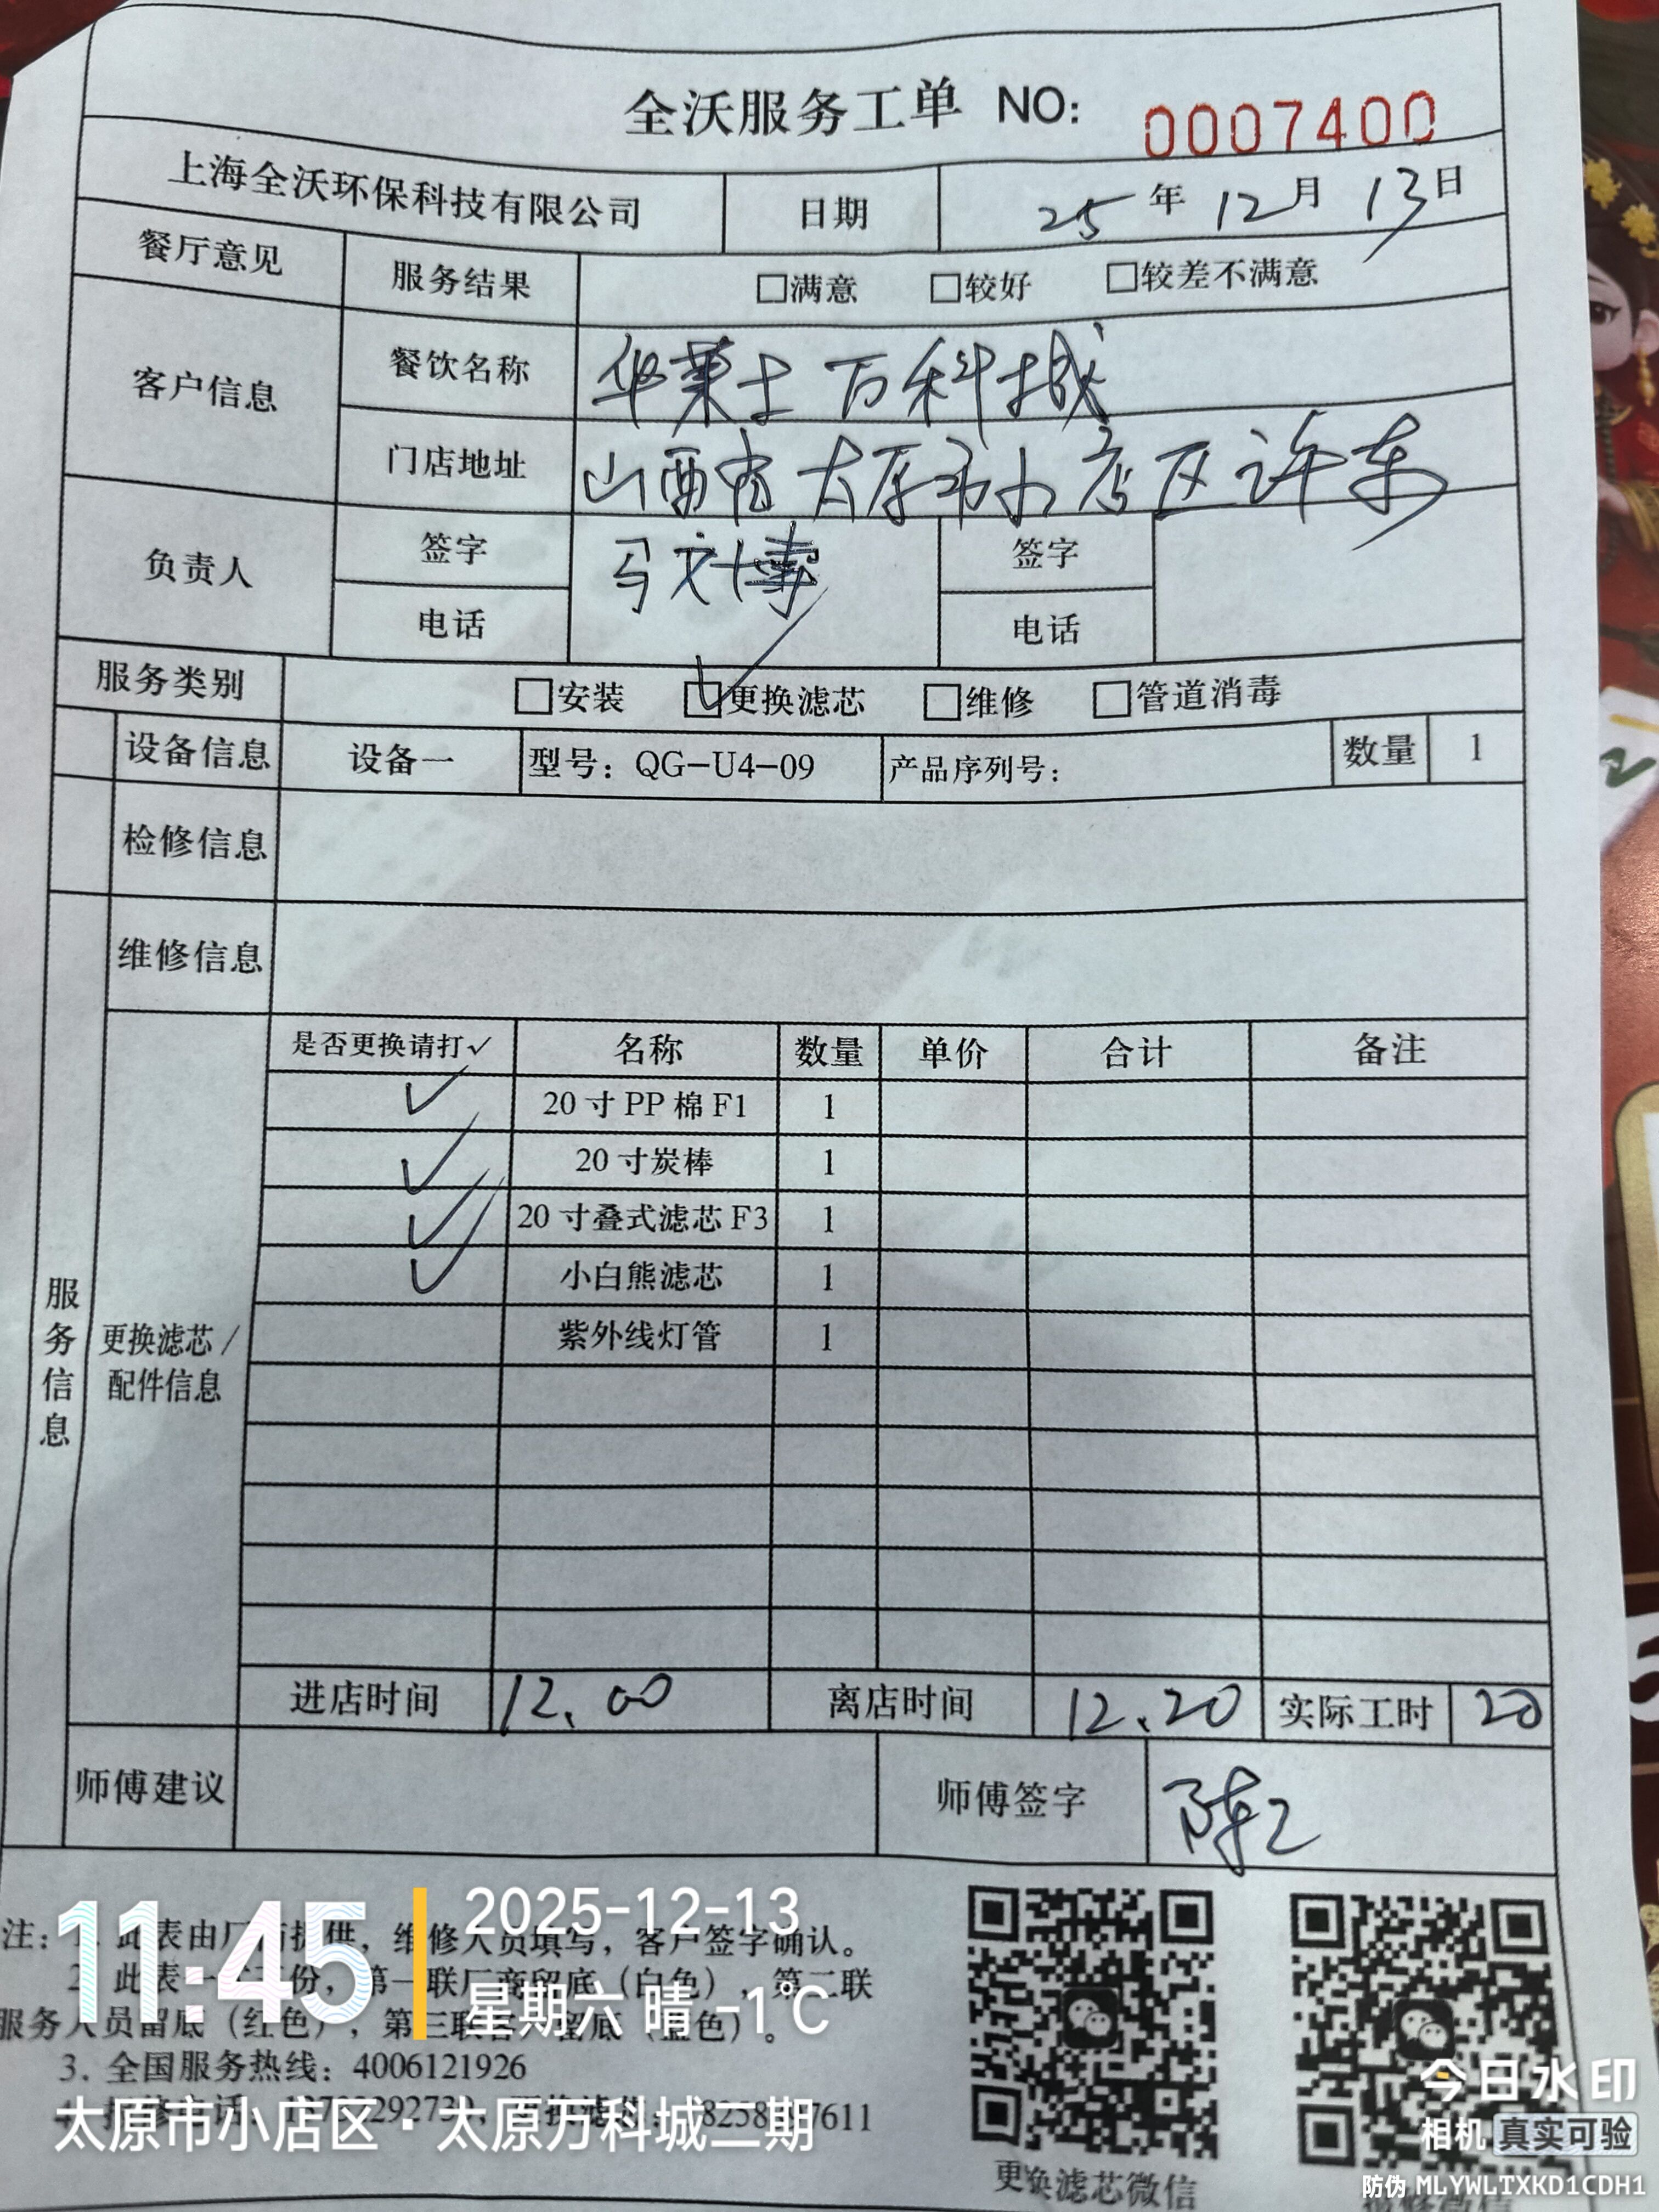 全沃服务工单 NO: 0007400
上海全沃环保科技有限公司 日期 25年12月13日
餐厅意见 服务结果 □满意 □较好 □较差不满意
客户信息 餐饮名称 华莱士 万科城
门店地址 山西省太原市小店区许东
负责人 签字 马文博 签字
电话 电话
服务类别 □安装 ☑更换滤芯 □维修 □管道消毒
设备信息 设备一 型号：QG-U4-09 产品序列号： 数量 1
检修信息
维修信息
服务信息
更换滤芯/配件信息
是否更换请打✓ 名称 数量 单价 合计 备注
✓ 20寸PP棉F1 1
✓ 20寸炭棒 1
✓ 20寸叠式滤芯F3 1
✓ 小白熊滤芯 1
紫外线灯管 1
进店时间 12.00 离店时间 12.20 实际工时 20
师傅建议 师傅签字 陈工
注：1. 此表由厂商提供，维修人员填写，客户签字确认。
2. 此表一式三份，第一联厂商留底（白色），第二联
服务人员留底（红色），第三联客户留底（蓝色）。
3. 全国服务热线：4006121926
更换滤芯微信
11:45
2025-12-13
星期六 晴 -1℃
太原市小店区·太原万科城二期
今日水印
相机 真实可验
防伪 MLYWLTXKD1CDH1